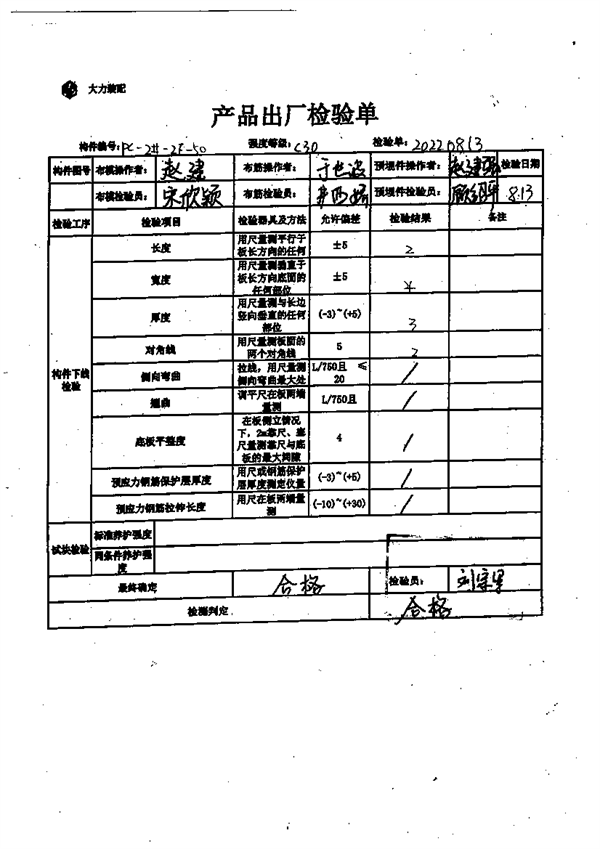 大力装配
产品出厂检验单
构件编号: PC-2#-2F-50 强度等级: C30 检验单: 20220813
构件图号 布模操作者: 赵建 布筋操作者: 于世波 预埋件操作者: 赵建强 检验日期
布模检验员: 宋欣颖 布筋检验员: 预埋件检验员: 8.13
检验工序 检验项目 检验器具及方法 允许偏差 检验结果 备注
构件下线检验
长度 用尺量测平行于板长方向的任何 ±5 2
宽度 用尺量测垂直于板长方向底面的任何部位 ±5 4
厚度 用尺量测与长边竖向垂直的任何部位 (-3)~(+5) 3
对角线 用尺量测板面的两个对角线 5 2
侧向弯曲 拉线，用尺量测侧向弯曲最大处 L/750且 ≤20 /
翘曲 调平尺在板两端量测 L/750且 /
底板平整度 在板侧立情况下，2m靠尺、塞尺量测靠尺与底板的最大间隙 4 /
预应力钢筋保护层厚度 用尺或钢筋保护层厚度测定仪量 (-3)~(+5) /
预应力钢筋拉伸长度 用尺在板两端量测 (-10)~(+30) /
试块检验 标准养护强度
同条件养护强度
最终确定 合格 检验员:
检测判定 合格